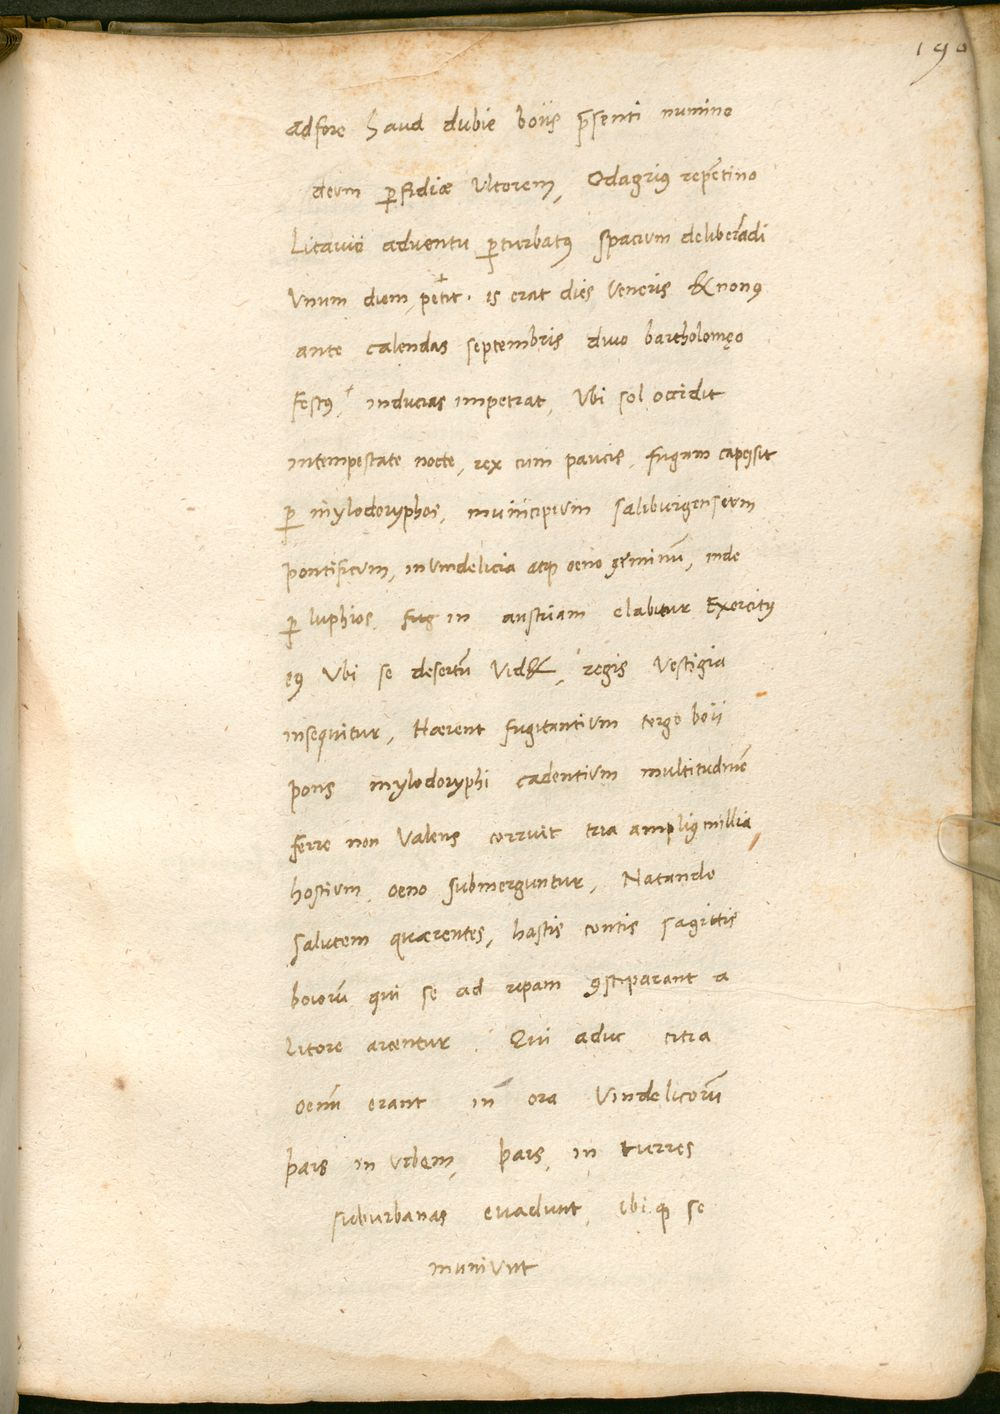 190
adfore haud dubie boiis p̄senti numine
deum ꝑfidiæ Vltorem, Odagriꝰ repētino
Litauio aduentu ꝑturbatꝰ spacium deliberādi
Vnum diem petit. is erat dies Veneris & nonꝰ
ante calendas septembris diuo bartholomęo
festꝰ, inducias impetrat, Vbi sol occidit
intempestate nocte, rex cum paucis, fugam capessit
ꝑ mylodoryphos, municipium saliburgensium
pontificum, in vindelicia atqꝫ oeno geminū, inde
ꝑ luphios in austriam elabitur Exercitꝰ
eꝰ Vbi se desertū Vid&, regis Vestigia
insequitur, Hærent fugitantium tergo boii
pons mylodoryphi cadentium multitudinē
ferre non Valens corruit tria ampliꝰ millia,
hostium oeno submerguntur, Natando
salutem quærentes, hastis contis sagittis
boiorū qui se ad ripam ꝯstiparant a
litore arcentur. Qui aduc citra
oenū erant in ora Vindelicorū
pars in vrbem, pars, in turres
suburbanas euadunt, ibi qꝫ se
muniunt